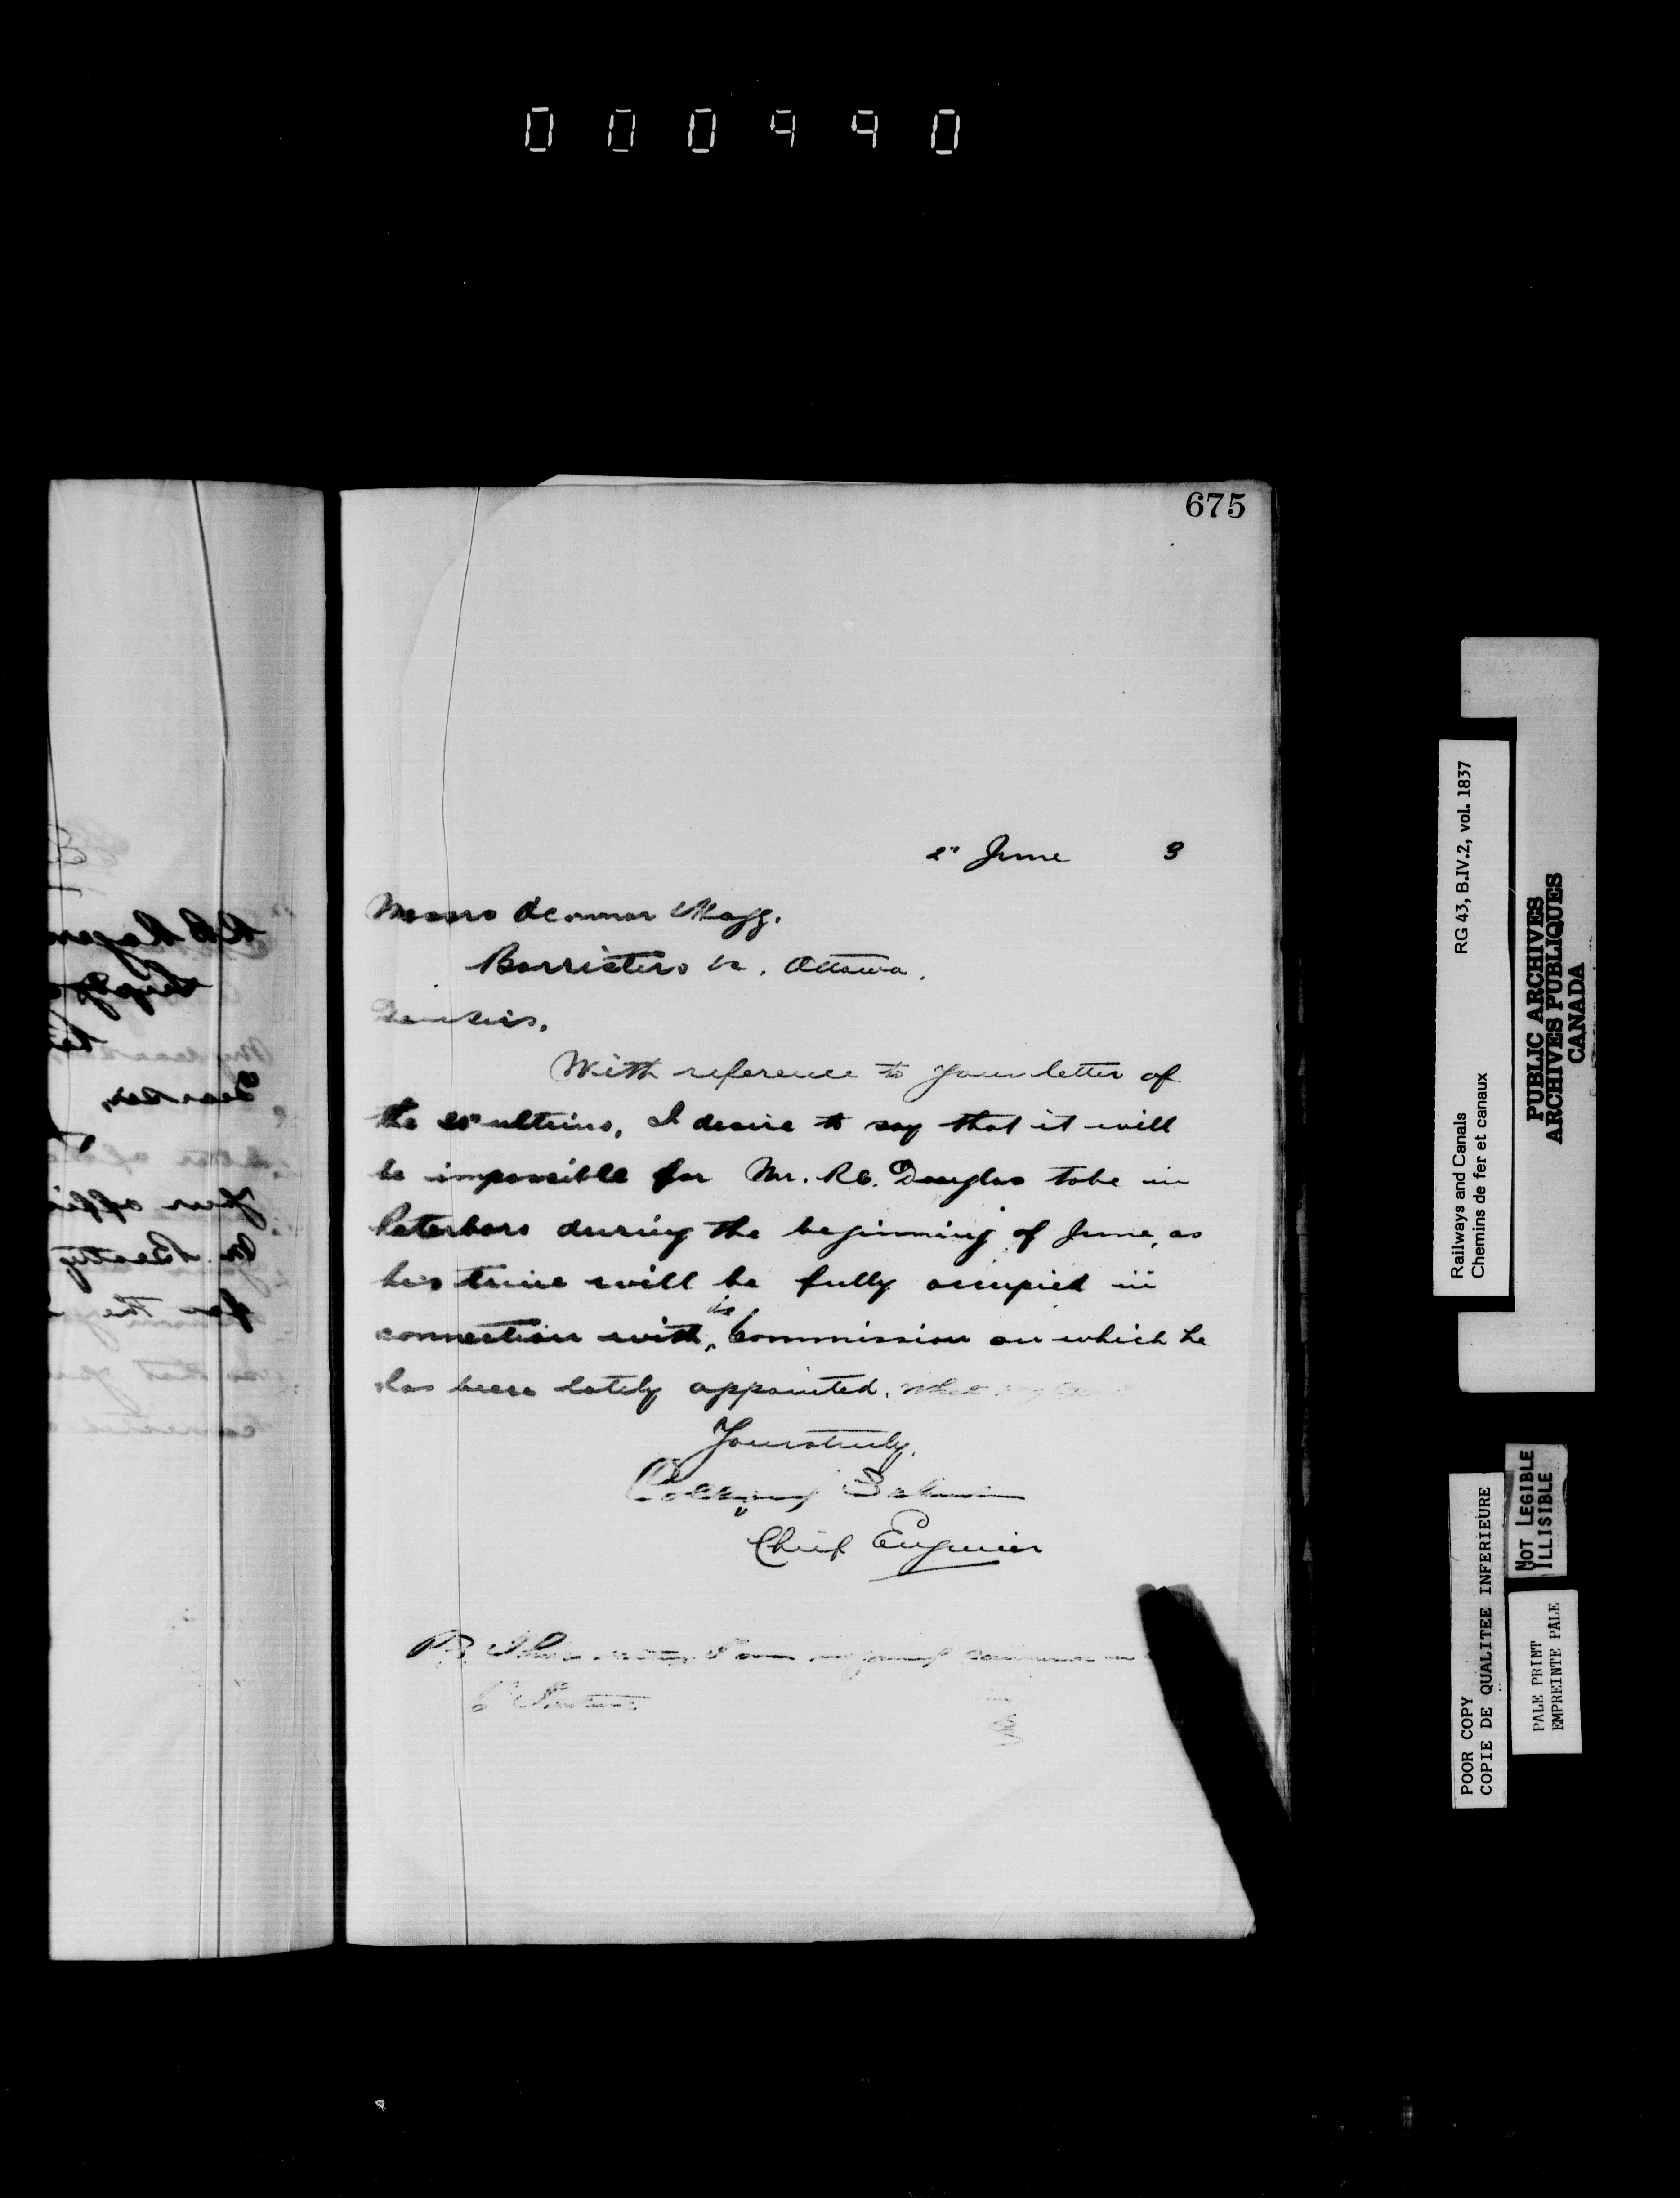 000440
675
2" June 3
Messrs O'Connor & Hogg.
Barristers &c. Ottawa.
Dear Sirs,
With reference to your letter of
the ultimo, I desire to say that it will
be impossible for Mr. R.C. Douglas to be in
Peterboro during the beginning of June, as
his time will be fully occupied in
connection with the Commission on which he
has been lately appointed.
Yours truly,
Collingwood Schreiber
Chief Engineer
P.S. I am
R B Rogers
Dear Sir,
your offi
Mr. Beatty
for the
so that you
Railways and Canals RG 43, B.IV.2, vol. 1837
Chemins de fer et canaux
PUBLIC ARCHIVES
ARCHIVES PUBLIQUES
CANADA
POOR COPY
COPIE DE QUALITEE INFERIEURE
NOT LEGIBLE
ILLISIBLE
PALE PRINT
EMPREINTE PALE